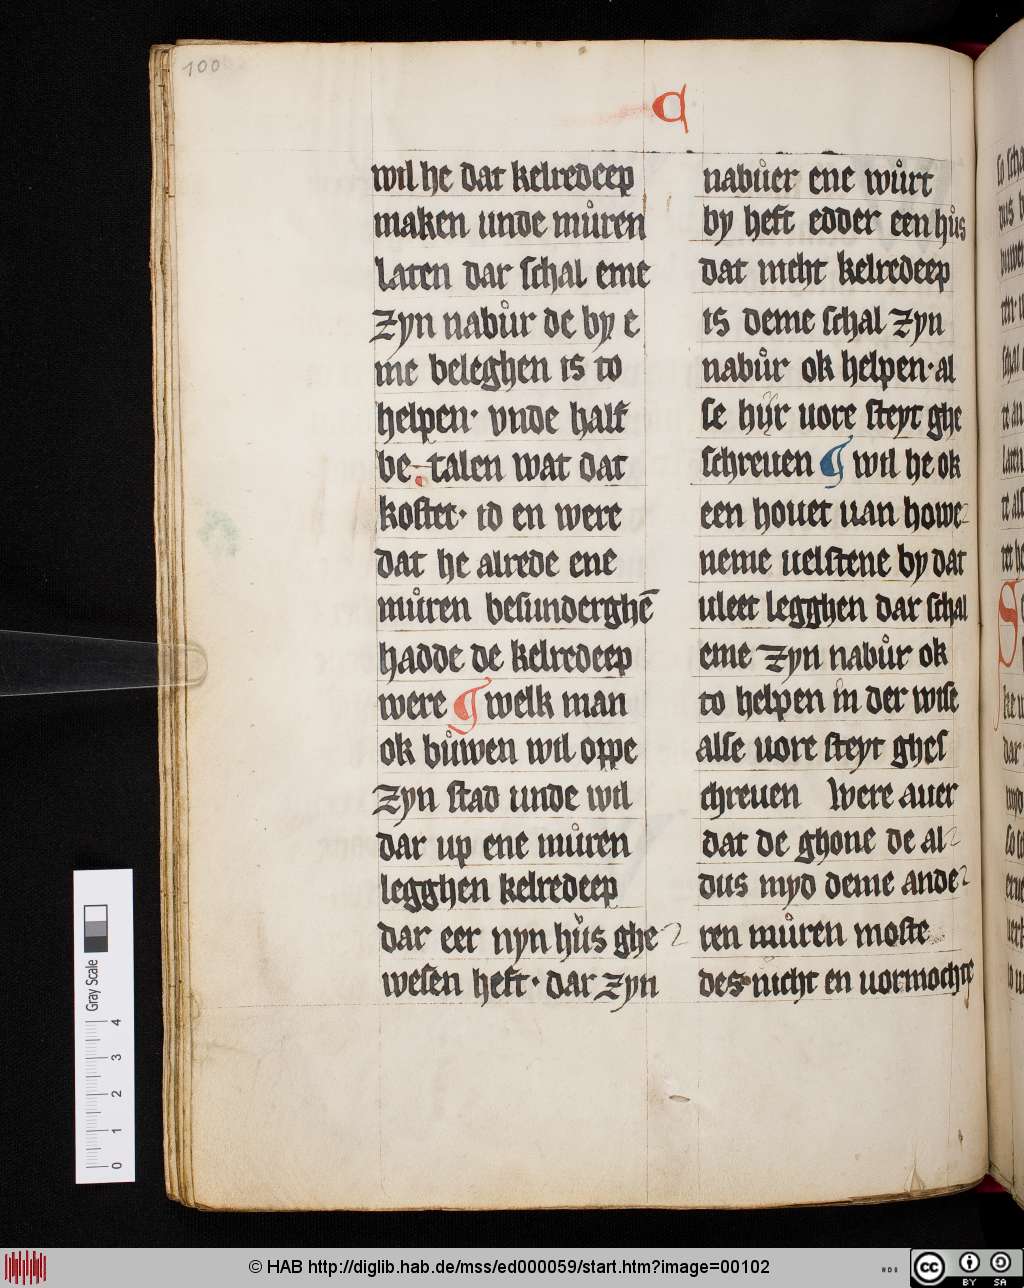 100
C
wil he dat kelredeep
maken unde můren
laten dar schal eme
zyn nabůr de by e
me beleghen is to
helpen· vnde half
be talen wat dat
kostet· id en were
dat he alrede ene
můren besunderghē
hadde de kelredeep
were ¶ welk man
ok bůwen wil oppe
zyn stad unde wil
dar up ene můren
legghen kelredeep
dar eer nyn hůs ghe
wesen heft· dar zyn
nabůer ene wůrt
by heft edder een hůs
dat nicht kelredeep
is deme schal zyn
nabůr ok helpen· al
se hijr uore steyt ghe
schreuen ¶ wil he ok
een houet uan howe
neme uelstene by dat
uleet legghen dar schal
eme zyn nabůr ok
to helpen in der wise
alse uore steyt ghes
chreuen Were auer
dat de ghone de al
dus myd deme ande
ren můren moste
des nicht en uormochte
Gray Scale
0 1 2 3 4
© HAB http://diglib.hab.de/mss/ed000059/start.htm?image=00102
cc BY SA